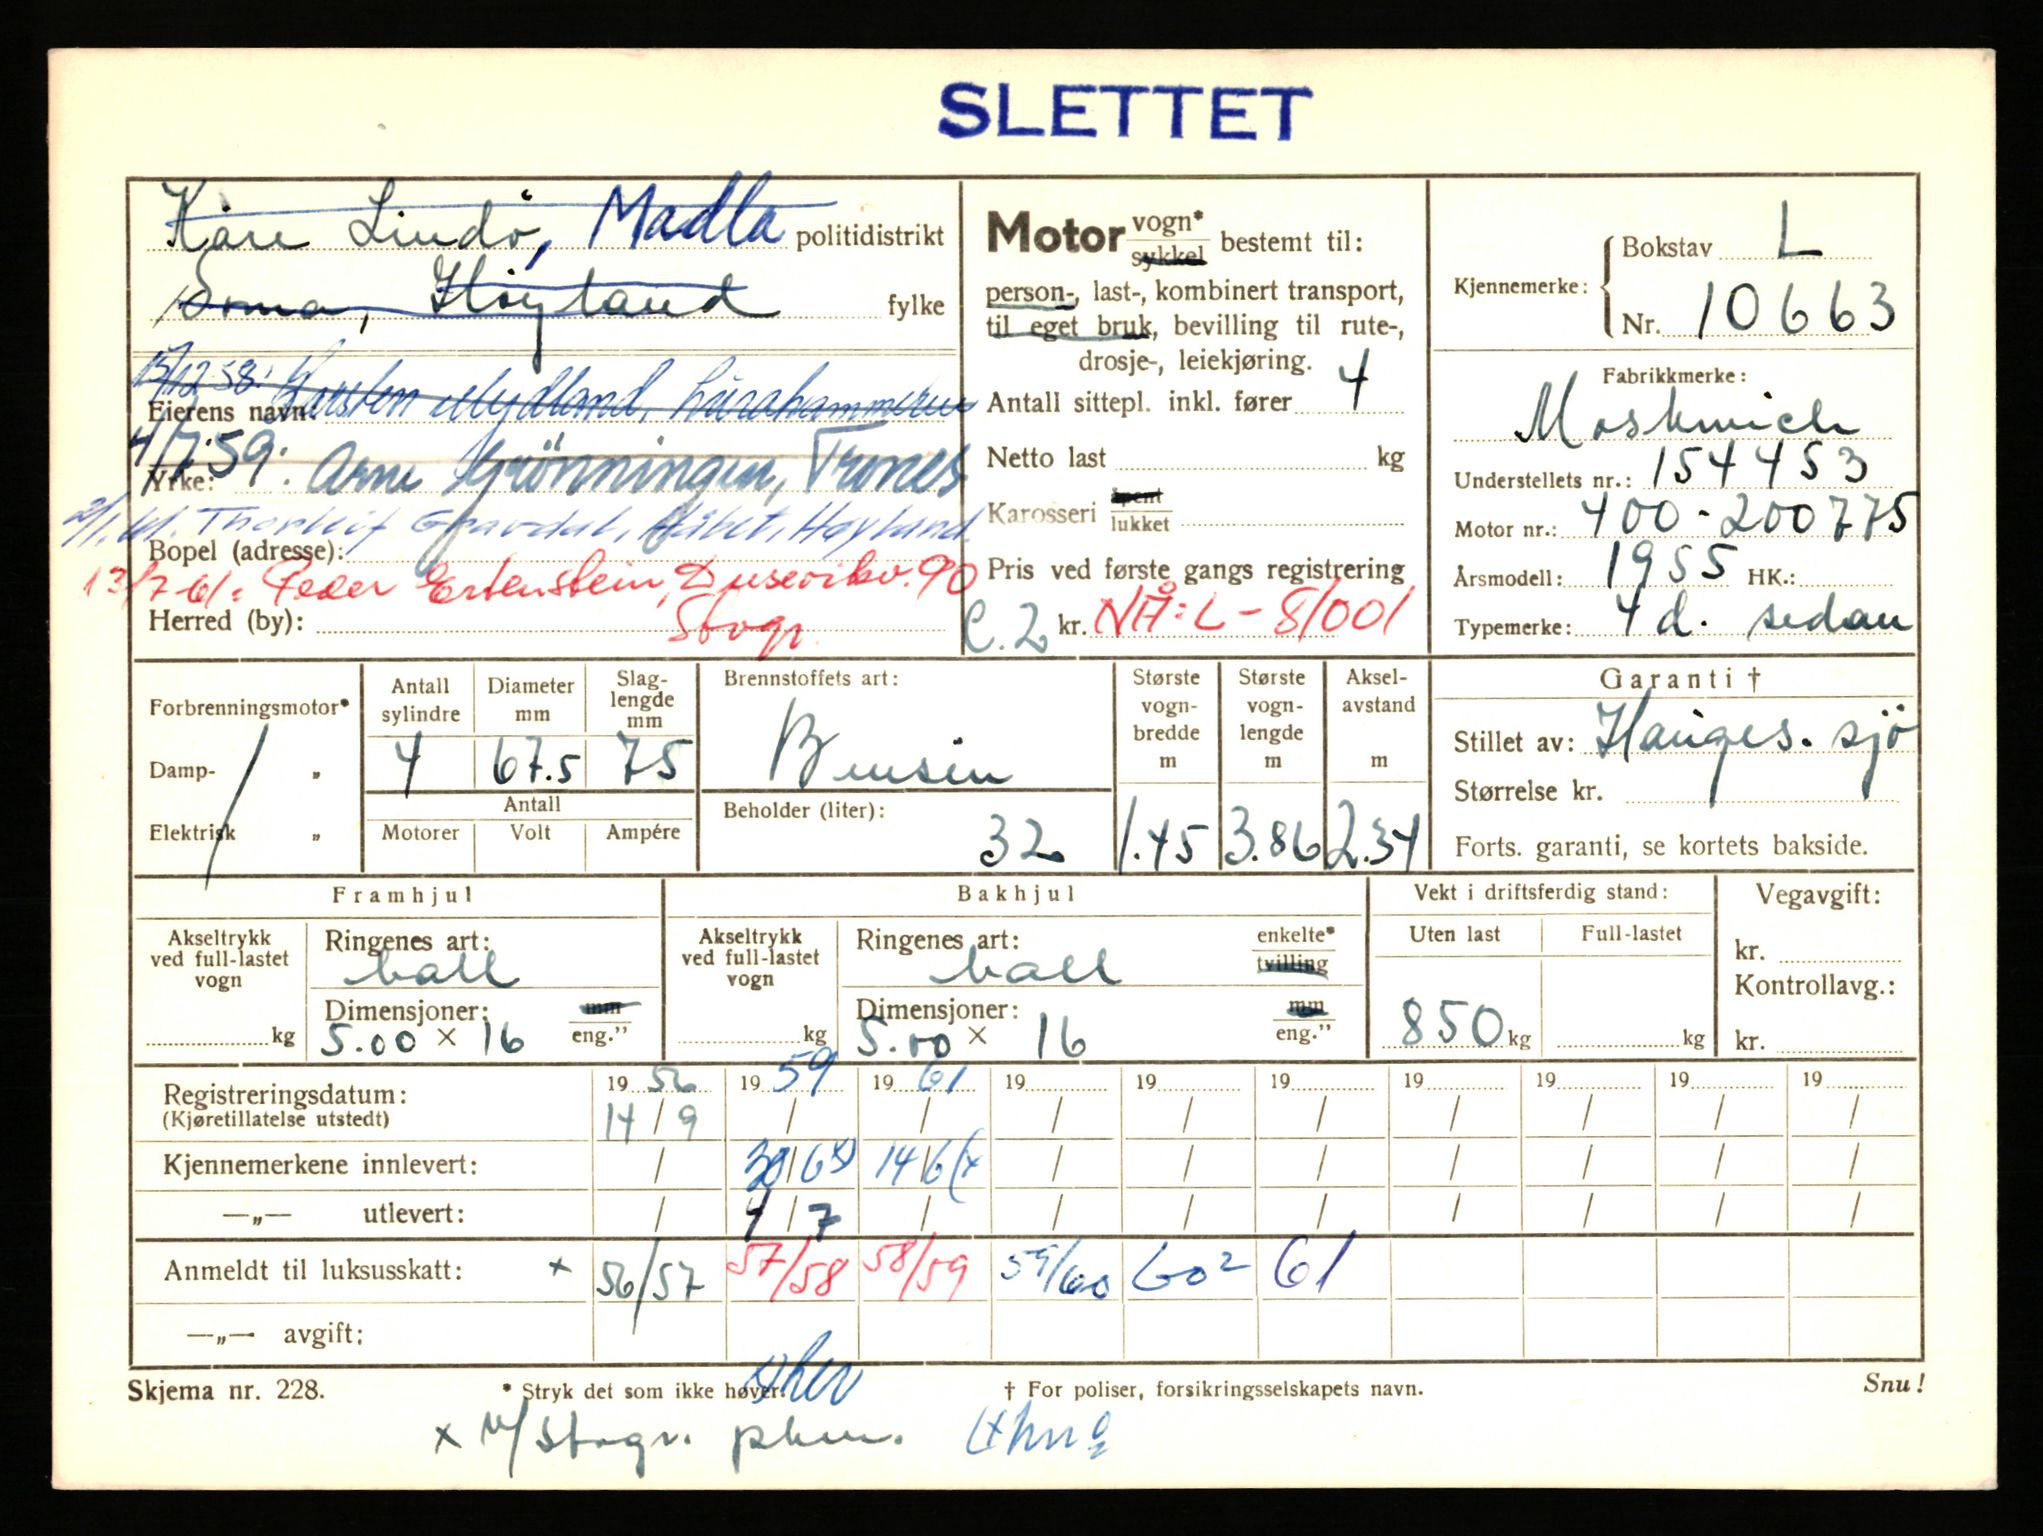 SLETTET
Kåre Lindö, Madla politidistrikt
Soma, Høyland fylke
15/12 58: Karsten Mydland, Lurahammeren
Eierens navn:
4/7.59: Arne Grönningen, Trones
Yrke:
2/1.61. Thorleif Gravdal, Høyland.
Bopel (adresse):
13/7-61: Peder Ertenstein, Dusevikv. 90
Stvgr.
Herred (by):
Motor vogn*
sykkel
bestemt til:
person-, last-, kombinert transport,
til eget bruk, bevilling til rute-,
drosje-, leiekjøring.
Antall sittepl. inkl. fører 4
Netto last kg
Karosseri åpent
lukket
Pris ved første gangs registrering
C.2 kr. NÅ: L-51001
Kjennemerke: Bokstav L
Nr. 10663
Fabrikkmerke:
Moskwich
Understellets nr.: 154453
Motor nr.: 400-200775
Årsmodell: 1955 HK.:
Typemerke: 4 d. sedan
Forbrenningsmotor*
Damp- „
Elektrisk „
Antall sylindre Diameter mm Slaglengde mm
4 67.5 75
Antall
Motorer Volt Ampére
Brennstoffets art:
Bensin
Beholder (liter):
32
Største vogn-bredde m Største vogn-lengde m Aksel-avstand m
1.45 3.86 2.34
Garanti †
Stillet av: Hauges. sjö
Størrelse kr.
Forts. garanti, se kortets bakside.
Framhjul
Akseltrykk ved full-lastet vogn
kg
Ringenes art:
ball
Dimensjoner: mm
5.00 × 16 eng.”
Bakhjul
Akseltrykk ved full-lastet vogn
kg
Ringenes art: enkelte*
ball tvilling
Dimensjoner: mm
5.00 × 16 eng.”
Vekt i driftsferdig stand:
Uten last Full-lastet
850 kg kg
Vegavgift:
kr.
Kontrollavg.:
kr.
Registreringsdatum: 19 56 19 59 19 61 19 19 19 19 19 19 19
(Kjøretillatelse utstedt) 14/9 / / / / / / / / /
Kjennemerkene innlevert: / 30/6 x) 14/6 (x / / / / / / /
—„— utlevert: / 4/7 / / / / / / / /
Anmeldt til luksusskatt: x 56/57 57/58 58/59 59/60 60² 61
—„— avgift:
Skjema nr. 228. * Stryk det som ikke høver. † For poliser, forsikringsselskapets navn. Snu!